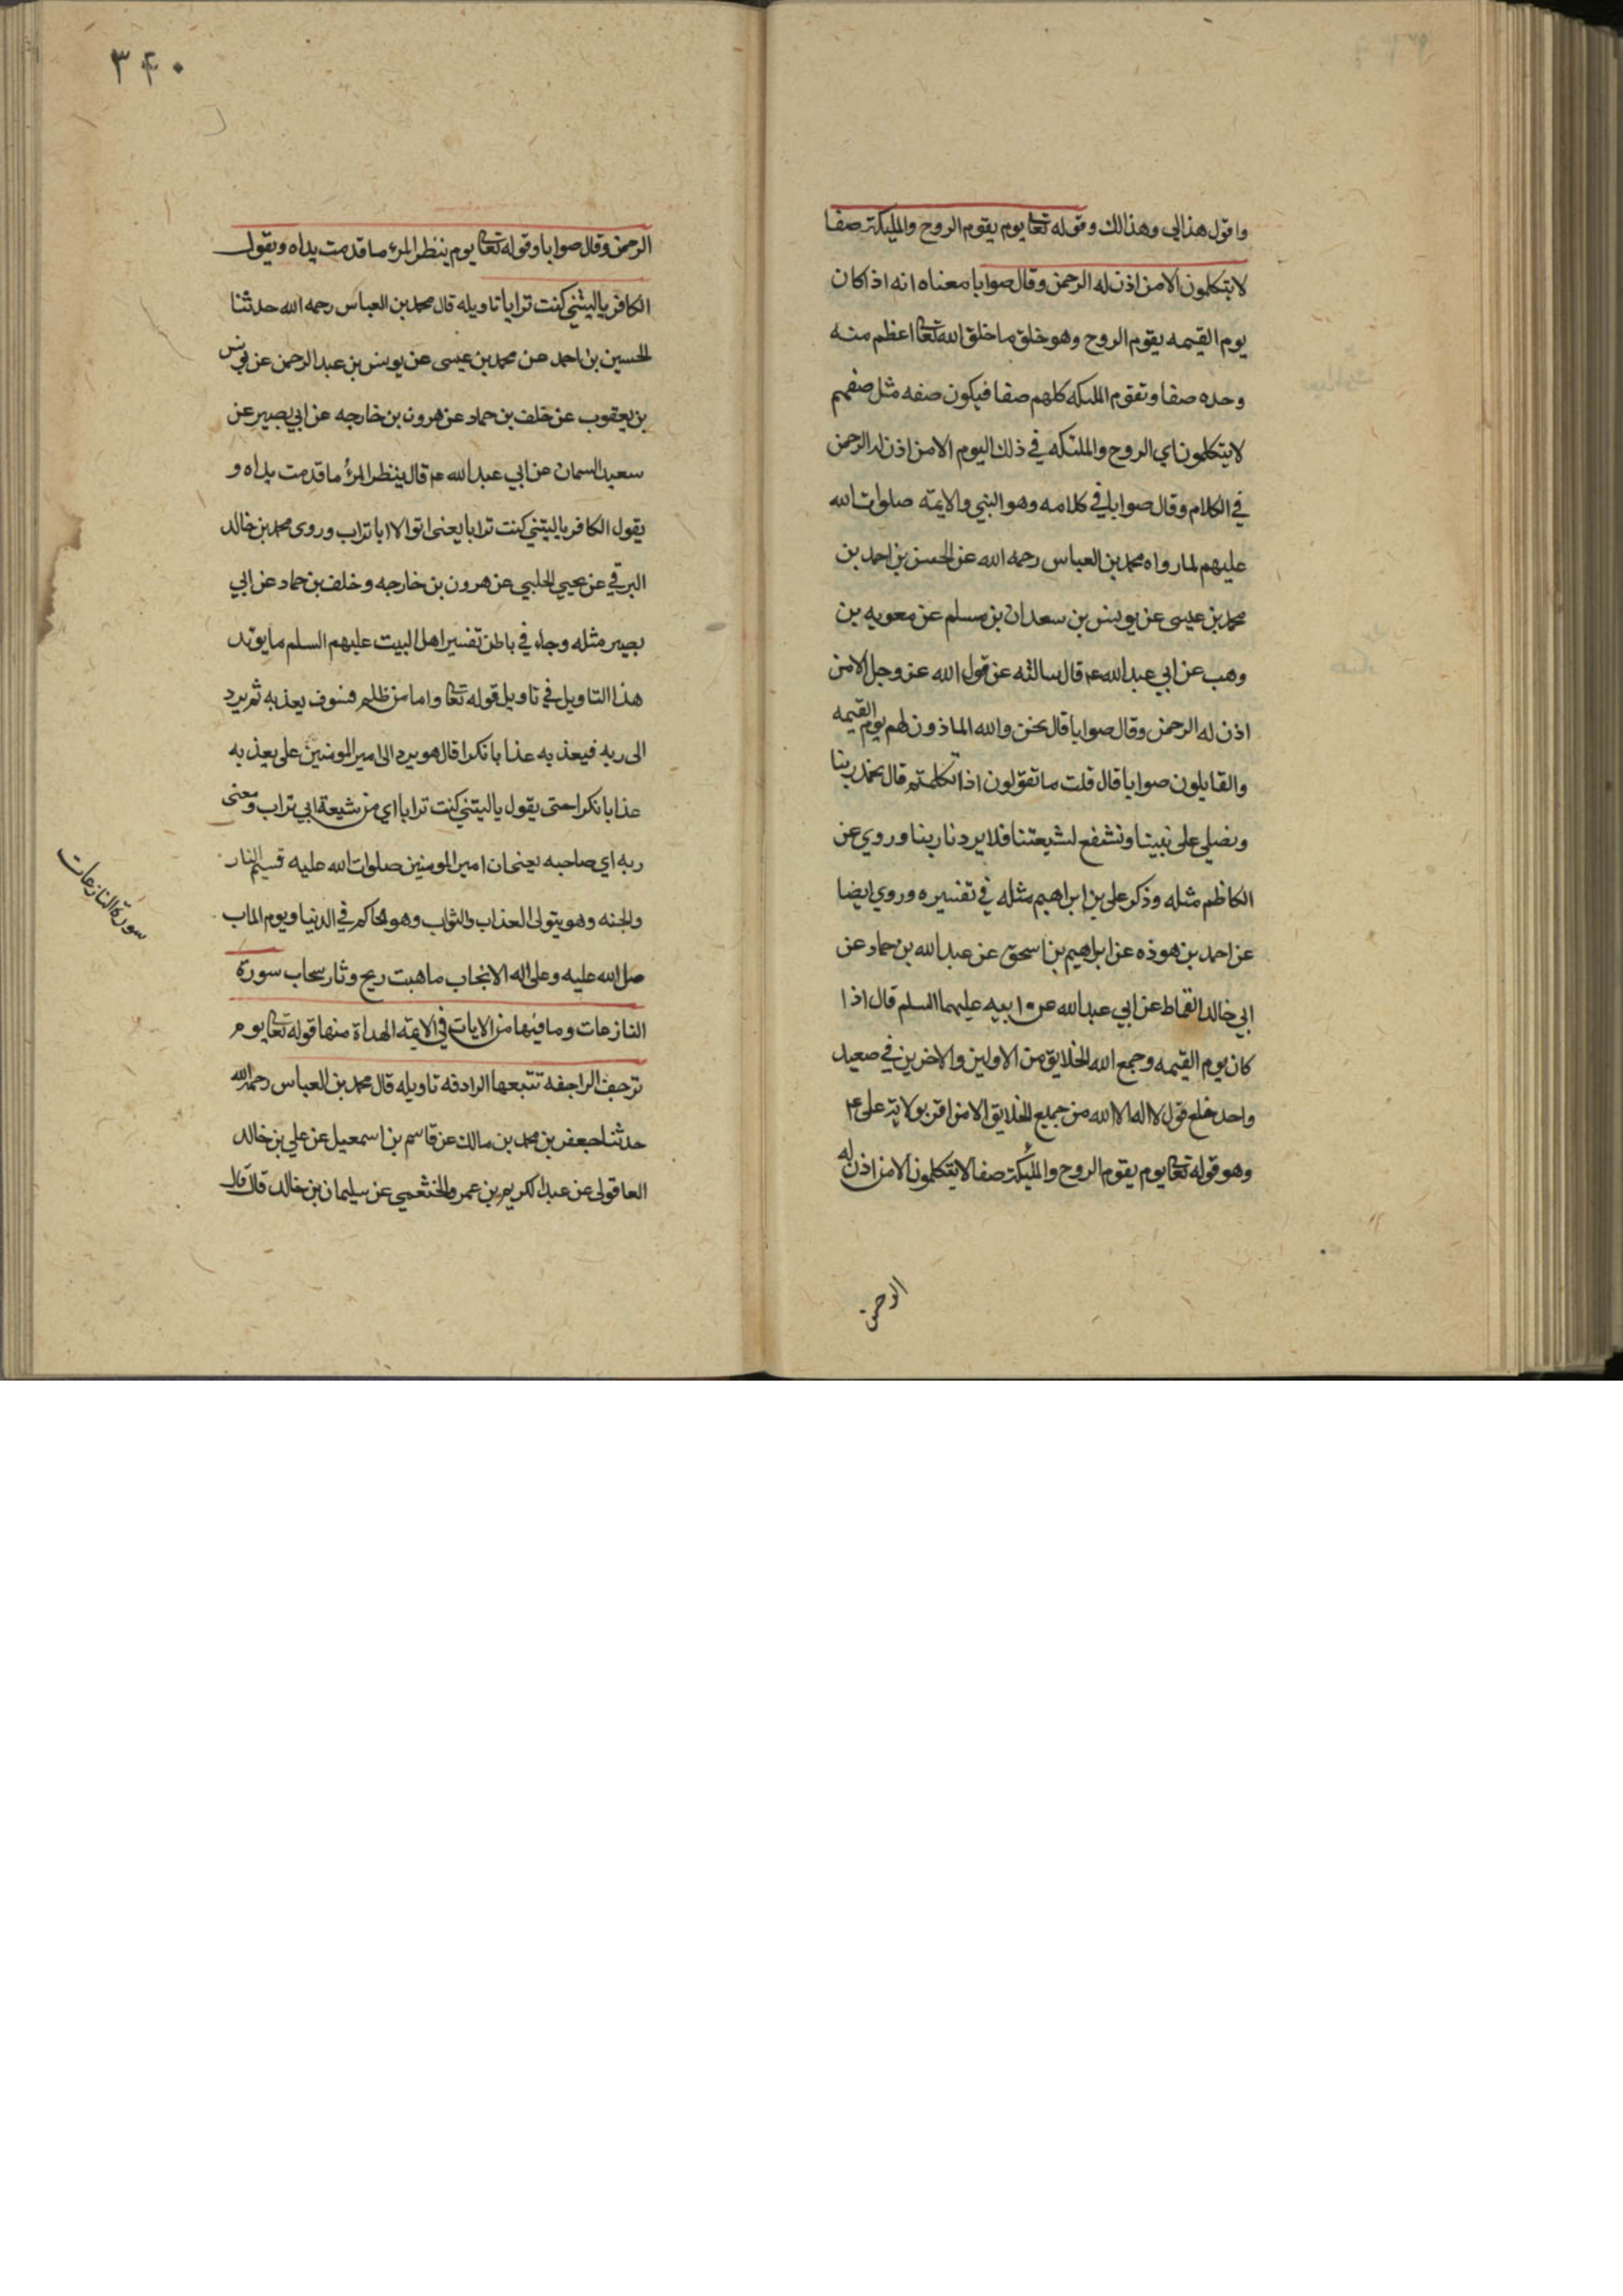 واقول هذا لي وهذا لك وقوله تعا يوم يقوم الروح والمليكة صفا
لا يتكلمون الا من اذن له الرحمن وقال صوابا معناه انه اذا كان
يوم القيمه يقوم الروح وهو خلق ما خلق الله تعا اعظم منه
وحده صفا وتقوم الملىكه كلهم صفا فيكون صفه مثل صفهم
لا يتكلمون اي الروح والملئكه في ذلك اليوم الا من اذن له الرحمن
في الكلام وقال صوابا في كلامه وهو النبي والايمة صلوات الله
عليهم لما رواه محمد بن العباس رحمه الله عن الحسين بن احمد بن
محمد بن عيسى عن يونس بن سعدان بن مسلم عن معويه بن
وهب عن ابي عبد الله ع قال سالته عن قول الله عز وجل الا من
اذن له الرحمن وقال صوابا قال نحن والله الماذون لهم يوم القيمه
والقايلون صوابا قال قلت ما تقولون اذا تكلمتم قال نحمد ربنا
ونصلي على نبينا ونشفع لشيعتنا فلا يردنا ربنا وروي عن
الكاظم مثله وذكر علي بن ابراهيم مثله في تفسيره وروي ايضا
عن احمد بن هوذه عن ابراهيم بن اسحق عن عبد الله بن حماد عن
ابي خالد القماط عن ابي عبد الله عن ابيه عليهما السلم قال اذا
كان يوم القيمه وجمع الله الخلايق من الاولين والاخرين في صعيد
واحد خلع قول لا اله الا الله من جميع الخلايق الا من اقر بولاية علي ع
وهو قوله تعا يوم يقوم الروح والمليكة صفا لا يتكلمون الا من اذن له
الرحمن
٣٤٠
الرحمن وقال صوابا وقوله تعا يوم ينظر المرء ما قدمت يداه ويقول
الكافر يا ليتني كنت ترابا تاويله قال محمد بن العباس رحمه الله حدثنا
الحسين بن احمد عن محمد بن عيسى عن يونس بن عبد الرحمن عن يونس
بن يعقوب عن خلف بن حماد عن هرون بن خارجه عن ابي بصير عن
سعيد السمان عن ابي عبد الله ع قال ينظر المرء ما قدمت يداه و
يقول الكافر يا ليتني كنت ترابا يعني اتوالا ابا تراب وروى محمد بن خالد
البرقي عن يحيي الحلبي عن هرون بن خارجه وخلف بن حماد عن ابي
بصير مثله وجاء في باطن تفسير اهل البيت عليهم السلم ما يويد
هذا التاويل في تاويل قوله تعا واما من ظلم فسوف يعذبه ثم يرد
الى ربه فيعذبه عذابا نكرا قال هو يرد الى امير المومنين علي يعذبه
عذابا نكرا حتى يقول يا ليتني كنت ترابا اي من شيعة ابي تراب ومعنى
ربه اي صاحبه يعني ان امير المومنين صلوات الله عليه قسيم النار
والجنه وهو يتولى العذاب والثواب وهو الحاكم في الدنيا ويوم الماب
صل الله عليه وعلى اله الانجاب ما هبت ريح وثار سحاب سورة
النازعات وما فيها من الايات في الايمة الهداة منها قوله تعا يوم
ترجف الراجفه تتبعها الرادفه تاويله قال محمد بن العباس رحمه الله
حدثنا جعفر بن محمد بن مالك عن قاسم بن اسمعيل عن علي بن خالد
العاقولى عن عبد الكريم بن عمرو الخثعمي عن سليمان بن خالد قال قال
سورة النازعات